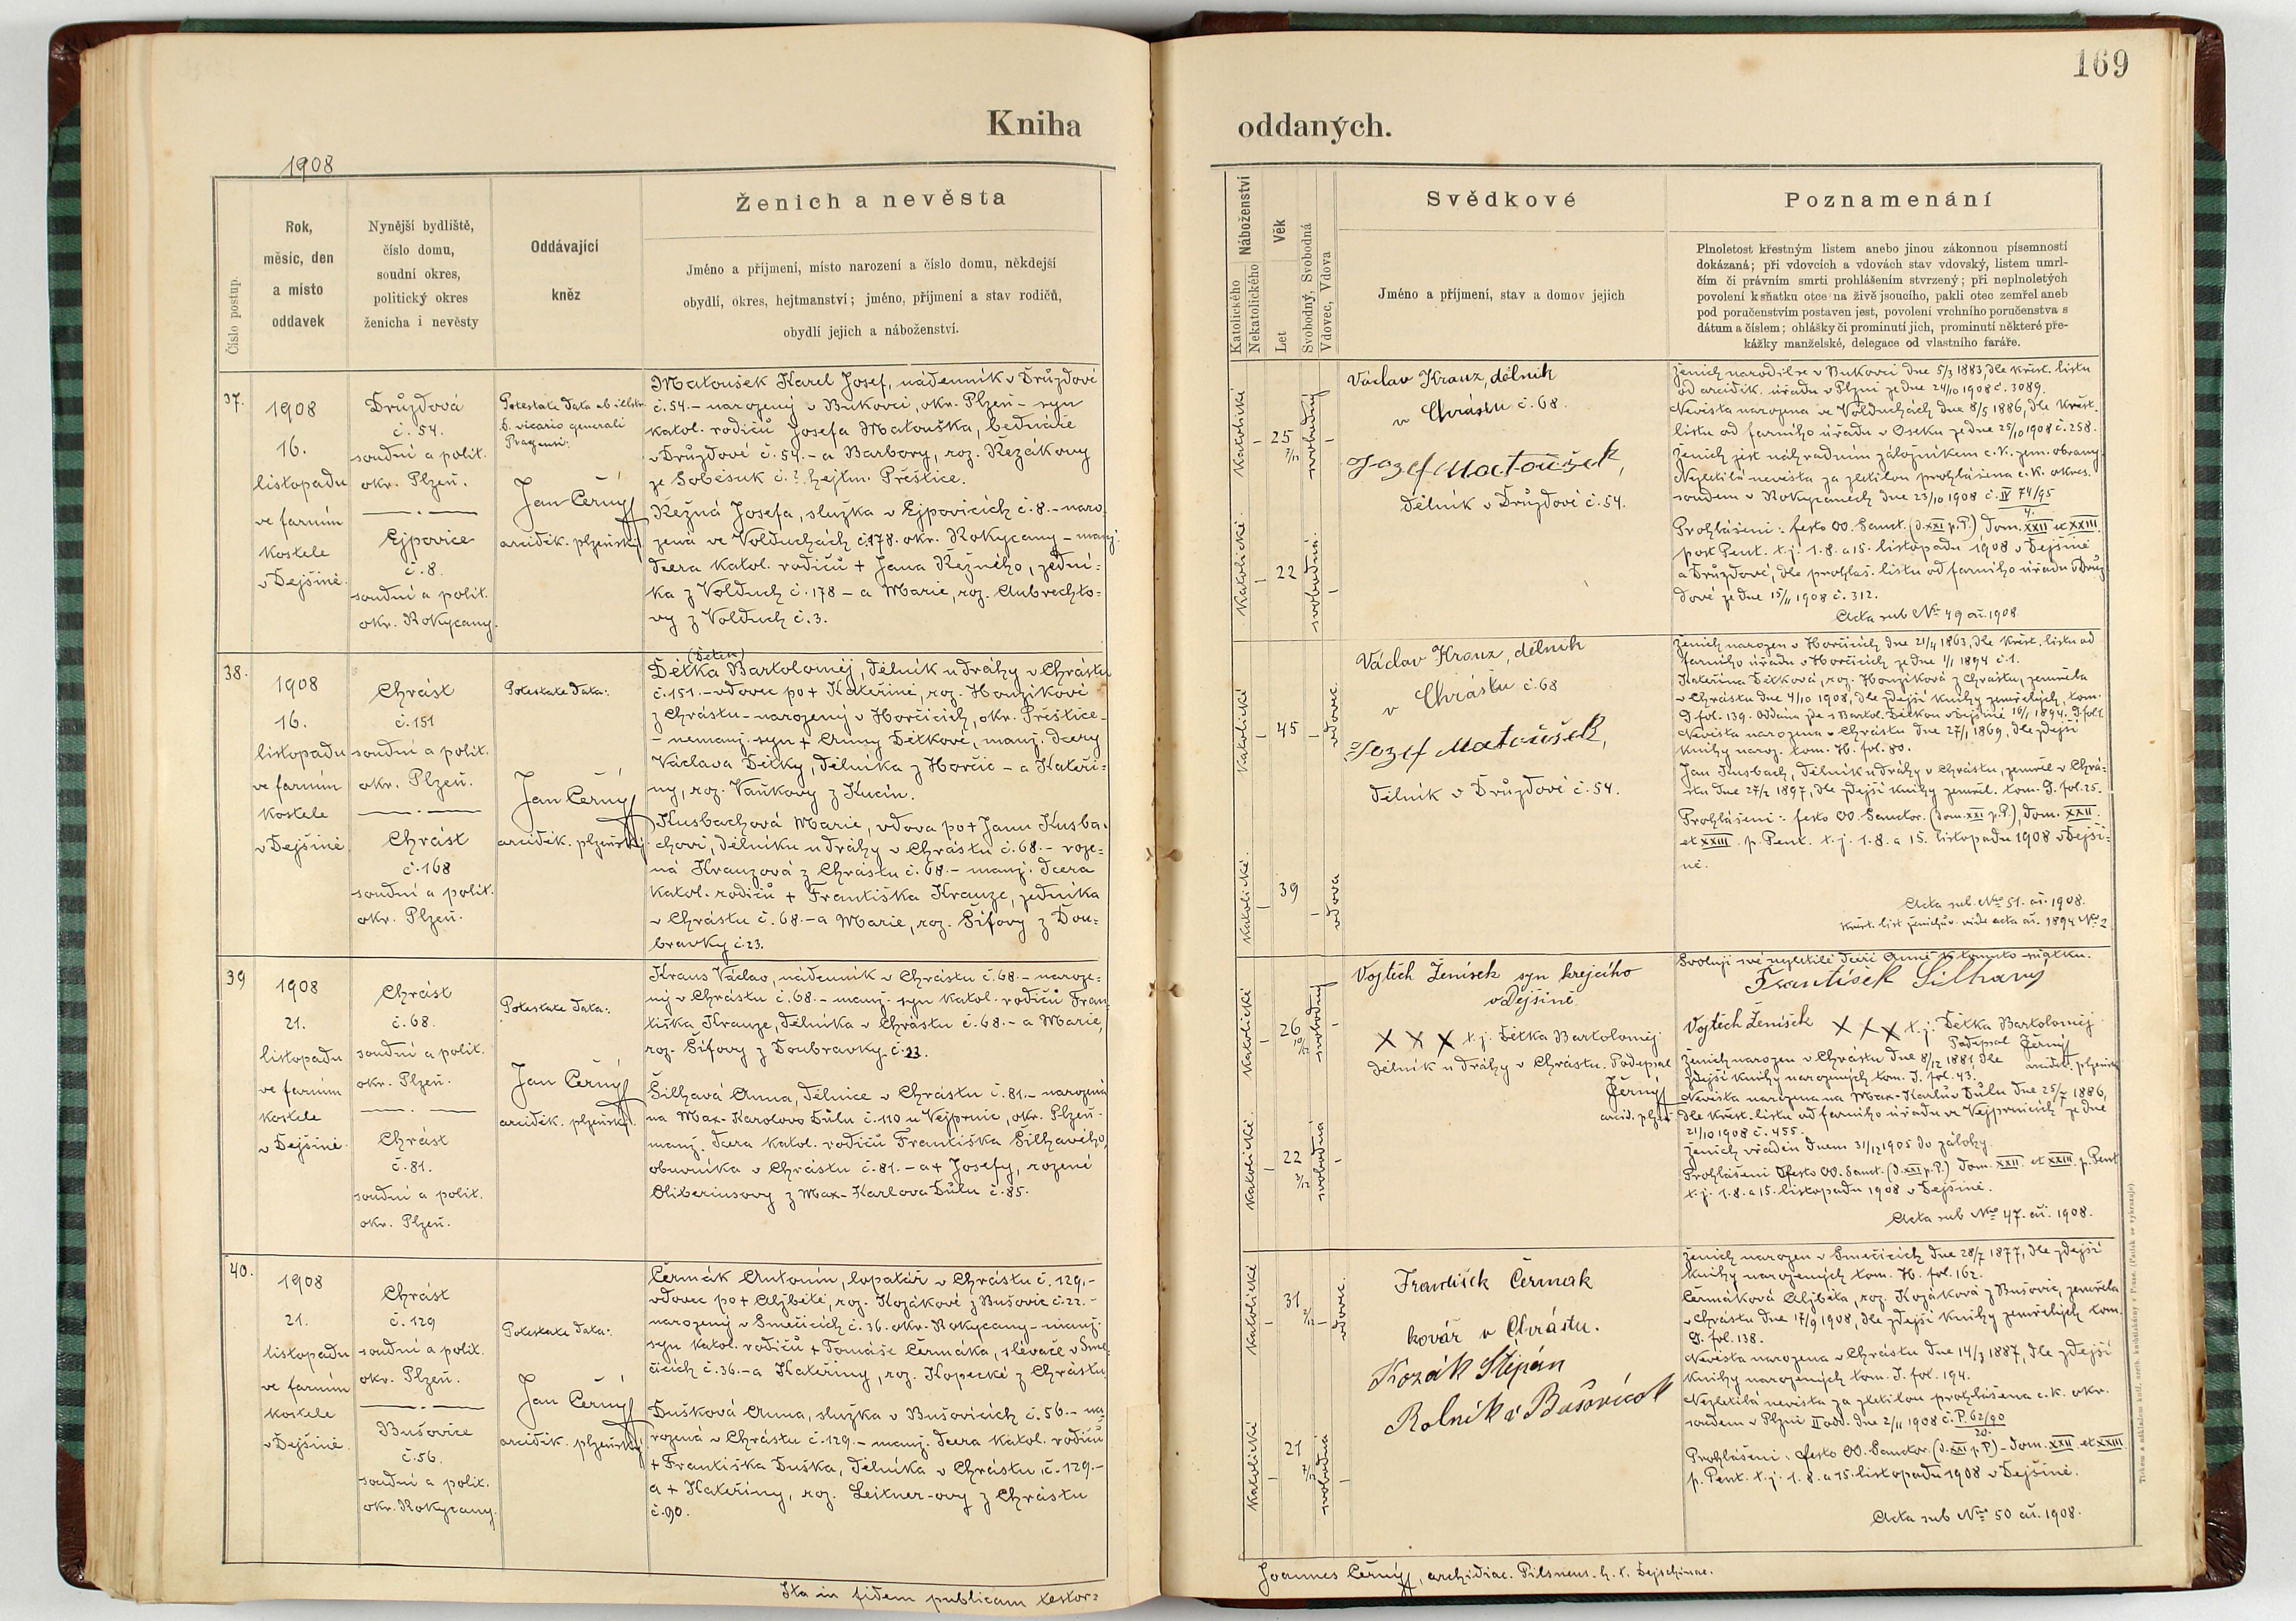 169
Kniha
oddaných.
1908
Číslo postup.
Rok,
měsíc, den
a místo
oddavek
Nynější bydliště,
číslo domu,
soudní okres,
politický okres
ženicha i nevěsty
Oddávající
kněz
Ženich a nevěsta
Jméno a příjmení, místo narození a číslo domu, někdejší
obydlí, okres, hejtmanství; jméno, příjmení a stav rodičů,
obydlí jejich a náboženství.
37.
1908
16.
listopadu
ve farním
kostele
v Dejšině.
Družďová
č. 54.
soudní a polit.
okr. Plzeň.
Ejpovice
č. 8.
soudní a polit.
okr. Rokycany.
Potestate data ab illstr.
D. vicario generali
Pragensi:
Jan Černý
arciděk. plzeňský.
Matoušek Karel Josef, nádenník v Druzďové
č. 54. – narozený v Bukovci, okr. Plzeň – syn
katol. rodičů Josefa Matouška, bednáře
v Druzďové č. 54. – a Barbory, roz. Řezákovy
ze Soběsuk č. ? hejtm. Přeštice.
Řežná Josefa, služka v Ejpovicích č. 8. – naro-
zená ve Volduchách č. 178. okr. Rokycany – manž.
dcera katol. rodičů + Jana Řežného, zední-
ka z Volduch č. 178 – a Marie, roz. Aubrechto-
vy z Volduch č. 3.
38.
1908
16.
listopadu
ve farním
kostele
v Dejšině
Chrást
č. 151
soudní a polit.
okr. Plzeň.
Chrást
č. 168
soudní a polit.
okr. Plzeň.
Potestate data:
Jan Černý
arciděk. plzeňský.
Dětka Bartoloměj, dělník u dráhy v Chrástu
č. 151. – vdovec po + Kateřině, roz. Houzikové
z Chrástu – narozený v Horčicích, okr. Přeštice –
– nemanž. syn + Anny Dětkové, manž. dcery
Václava Dětky, dělníka z Horčic – a Kateři-
ny, roz. Vaňkovy z Kucín.
Kusbachová Marie, vdova po + Janu Kusba-
chovi, dělníku u dráhy v Chrástu č. 68. – roze-
ná Krauzová z Chrástu č. 68. – manž. dcera
katol. rodičů + Františka Krauze, zedníka
v Chrástu č. 68. – a Marie, roz. Šifovy z Dou-
bravky č. 23.
39
1908
21.
listopadu
ve farním
kostele
v Dejšině.
Chrást
č. 68.
soudní a polit.
okr. Plzeň.
Chrást
č. 81.
soudní a polit.
okr. Plzeň.
Potestate data:
Jan Černý
arciděk. plzeňský.
Kraus Václav, nádenník v Chrástu č. 68. – naroze-
ný v Chrástu č. 68. – manž. syn katol. rodičů Fran-
tiška Krauze, dělníka v Chrástu č. 68. – a Marie,
roz. Šifovy z Doubravky č. 23.
Šilhavá Anna, dělnice v Chrástu č. 81. – narozená
na Max-Karolovo Důlu č. 110 u Vejprnic, okr. Plzeň –
manž. dcera katol. rodičů Františka Šilhavého,
obuvníka v Chrástu č. 81. – a + Josefy, rozené
Oliberiusovy z Max-Karlova Důlu č. 85.
40.
1908
21.
listopadu
ve farním
kostele
v Dejšině.
Chrást
č. 129
soudní a polit.
okr. Plzeň.
Bušovice
č. 56.
soudní a polit.
okr. Rokycany.
Potestate data:
Jan Černý
arciděk. plzeňský
Čermák Antonín, lopatář v Chrástu č. 129. –
vdovec po + Alžbětě, roz. Kozákové z Bušovic č. 22. –
narozený v Smečicích č. 36. okr. Rokycany – manž.
syn katol. rodičů + Tomáše Čermáka, slévače v Sme-
čicích č. 36. – a Kateřiny, roz. Kopecké z Chrástu.
Dušková Anna, služka v Bušovicích č. 56. – na-
rozená v Chrástu č. 129. – manž. dcera katol. rodičů
+ Františka Duška, dělníka v Chrástu č. 129. –
a + Kateřiny, roz. Leitner-ovy z Chrástu
č. 90.
Ita in fidem publicam testor:
Katolického
Nekatolického
Náboženství
Let
Věk
Svobodný, Svobodná
Vdovec, Vdova
Svědkové
Jméno a příjmení, stav a domov jejich
Poznamenání
Plnoletost křestným listem anebo jinou zákonnou písemností
dokázaná; při vdovcích a vdovách stav vdovský, listem umrl-
čím či právním smrti prohlášením stvrzený; při neplnoletých
povolení k sňatku otce na živě jsoucího, pakli otec zemřel aneb
pod poručenstvím postaven jest, povolení vrchního poručenstva s
dátum a číslem; ohlášky či prominutí jich, prominutí některé pře-
kážky manželské, delegace od vlastního faráře.
Katolické
25
svobodný
Katolické.
22
svobodná.
Václav Krauz, dělník
v Chrástu č. 68.
Jozef Matoušek,
dělník v Druzďové č. 54.
Ženich narodil se v Bukovci dne 5/3 1883, dle křest. listu
od arciděk. úřadu v Plzni ze dne 24/10 1908 č. 3089.
Nevěsta narozena ve Volduchách dne 8/5 1886, dle křest.
listu od farního úřadu v Oseku ze dne 25/10 1908 č. 258.
Ženich jest náhradním záložníkem c. k. zem. obrany.
Nezletilá nevěsta za zletilou prohlášena c. k. okres.
soudem v Rokycanech dne 23/10 1908 č. IV 74/95
4.
Prohlášeni: festo OO. Sanct. (D. XXI p. P.) Dom. XXII et XXIII.
post Pent. t. j. 1. 8. a 15. listopadu 1908 v Dejšině
a Druzďové, dle prohláš. listu od farního úřadu v Druz-
dové ze dne 15/11 1908 č. 312.
Acta sub No 49 ai. 1908
Katolické
45
vdovec
Katolické.
39
vdova
Václav Krauz, dělník
v Chrástu č. 68
Jozef Matoušek,
dělník v Druzďové č. 54.
Ženich narozen v Horčicích dne 21/4 1863, dle křest. listu od
farního úřadu v Horčicích ze dne 1/1 1894 č. 1.
Kateřina Dětková, roz. Houziková z Chrástu, zemřela
v Chrástu dne 4/10 1908, dle zdejší knihy zemřelých, tom.
Nevěsta narozena v Chrástu dne 27/1 1869, dle zdejší
knihy naroz. tom. H. fol. 80.
Jan Kusbach, dělník u dráhy v Chrástu, zemřel v Chrá-
stu dne 27/2 1897, dle zdejší knihy zemřel. tom. D. fol. 25.
Prohlášeni: festo OO. Sanctor. (Dom. XXI p. P.), Dom. XXII.
et XXIII. p. Pent. t. j. 1. 8. a 15. listopadu 1908 v Dejši-
ně.
Acta sub. No 51. ai. 1908.
Křest. list ženichův vide acta ai. 1894 No 2
Katolické
26
10/12
svobodný
Katolické
22
3/12
svobodná
Vojtěch Ženíšek syn krejcího
v Dejšině
X X X t. j. Dětka Bartoloměj
dělník u dráhy v Chrástu. Podepsal
Černý
arcid. plze.
Svoluji své nezletilé dceři Anně k tomuto sňatku.
František Šilhavý
Vojtěch Ženíšek X X X t. j. Dětka Bartoloměj
Podepsal Černý
arciděk. plzeňsk.
Ženich narozen v Chrástu dne 8/12 1881, dle
zdejší knihy narozených tom. I. fol. 43.
Nevěsta narozena na Max-Karlův Důlu dne 25/7 1886,
dle křest. listu od farního úřadu ve Vejprnicích ze dne
21/10 1908 č. 455.
Ženich vřaděn dnem 31/12 1905 do zálohy.
Prohlášeni festo OO. Sanct. (D. XXI p. P.) Dom. XXII. et XXIII. p. Pent
t. j. 1. 8. a 15. listopadu 1908 v Dejšině.
Acta sub No 47. ai. 1908.
Katolické
31
vdovec.
Katolické
21
svobodná
František Čermak
kovář v Chrástu.
Kozák Štěpán
Rolník v Bušovicích
Ženich narozen v Smečicích dne 28/7 1877, dle zdejší
knihy narozených tom. H. fol. 162.
Čermáková Alžběta, roz. Kozáková z Bušovic, zemřela
v Chrástu dne 17/9 1908, dle zdejší knihy zemřelých tom.
D. fol. 138.
Nevěsta narozena v Chrástu dne 14/3 1887, dle zdejší
knihy narozených tom. I. fol. 194.
Nezletilá nevěsta za zletilou prohlášena c. k. okr.
soudem v Plzni II odd. dne 2/11 1908 č. P. 62/90
20.
Prohlášeni: festo OO. Sanctor. (D. XXI p. P) – Dom. XXII et XXIII.
p. Pent. t. j. 1. 8. a 15. listopadu 1908 v Dejšině.
Acta sub No 50 ai. 1908.
Joannes Černý, archidiac. Pilsnens. h. t. Dejschinae.